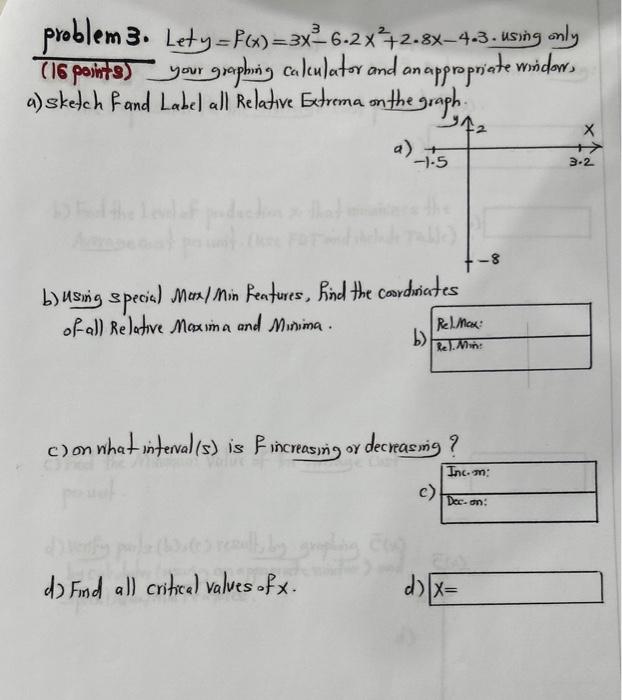 problem 3. Let y = f(x) = 3x³ - 6.2x² + 2.8x - 4.3. using only
(16 points) your graphing calculator and an appropriate window,
a) sketch f and Label all Relative Extrema on the graph.
y
2
x
a)
-1.5
3.2
-8
b) using special Max/Min features, find the coordinates
of all Relative Maxima and Minima.
b)
Rel. Max:
Rel. Min:
c) on what interval(s) is f increasing or decreasing?
c)
Inc. on:
Dec. on:
d) Find all critical values of x.
d) x=